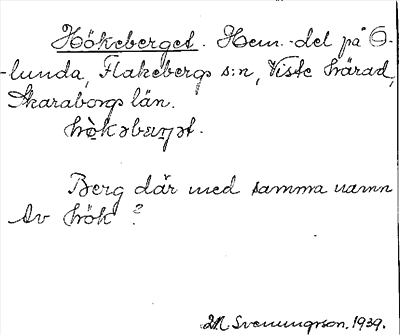 Hökeberget. Hem.-del på O-
-lunda, Flakebergs s:n, Viste härad,
Skaraborgs län.
hö̀kəbæɳət.
Berg där med samma namn
Av hök?
M Svenungson. 1939.